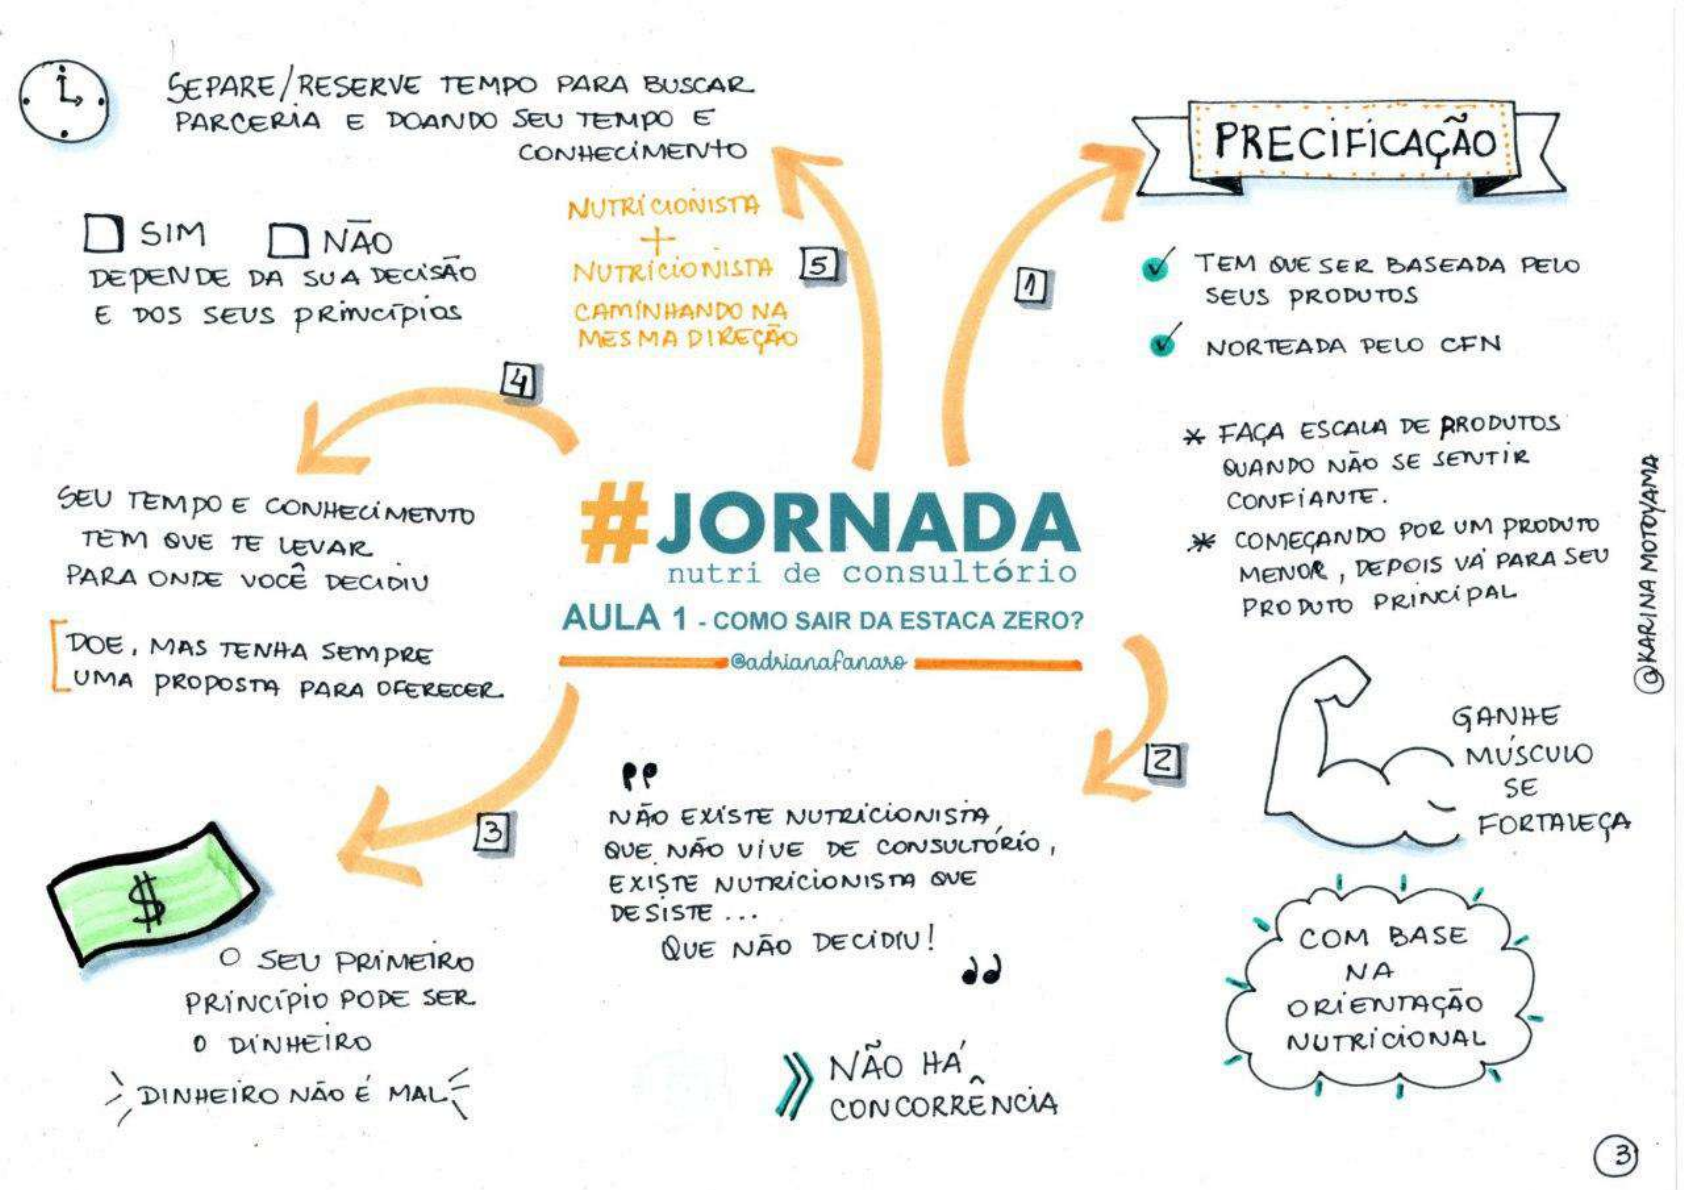 SEPARE/RESERVE TEMPO PARA BUSCAR
PARCERIA E DOANDO SEU TEMPO E
CONHECIMENTO
NUTRICIONISTA
+
NUTRICIONISTA
CAMINHANDO NA
MESMA DIREÇÃO
5
SIM NÃO
DEPENDE DA SUA DECISÃO
E DOS SEUS PRINCÍPIOS
4
1
PRECIFICAÇÃO
TEM QUE SER BASEADA PELO
SEUS PRODUTOS
NORTEADA PELO CFN
* FAÇA ESCALA DE PRODUTOS
QUANDO NÃO SE SENTIR
CONFIANTE.
* COMEÇANDO POR UM PRODUTO
MENOR, DEPOIS VÁ PARA SEU
PRODUTO PRINCIPAL
@KARINA MOTOYAMA
SEU TEMPO E CONHECIMENTO
TEM QUE TE LEVAR
PARA ONDE VOCÊ DECIDIU
DOE, MAS TENHA SEMPRE
UMA PROPOSTA PARA OFERECER
#JORNADA
nutri de consultório
AULA 1 - COMO SAIR DA ESTACA ZERO?
@adrianafanaro
2
GANHE
MÚSCULO
SE
FORTALEÇA
COM BASE
NA
ORIENTAÇÃO
NUTRICIONAL
"
NÃO EXISTE NUTRICIONISTA
QUE NÃO VIVE DE CONSULTÓRIO,
EXISTE NUTRICIONISTA QUE
DESISTE...
QUE NÃO DECIDIU!
"
NÃO HÁ
CONCORRÊNCIA
3
$
O SEU PRIMEIRO
PRINCÍPIO PODE SER
O DINHEIRO
DINHEIRO NÃO É MAL
3